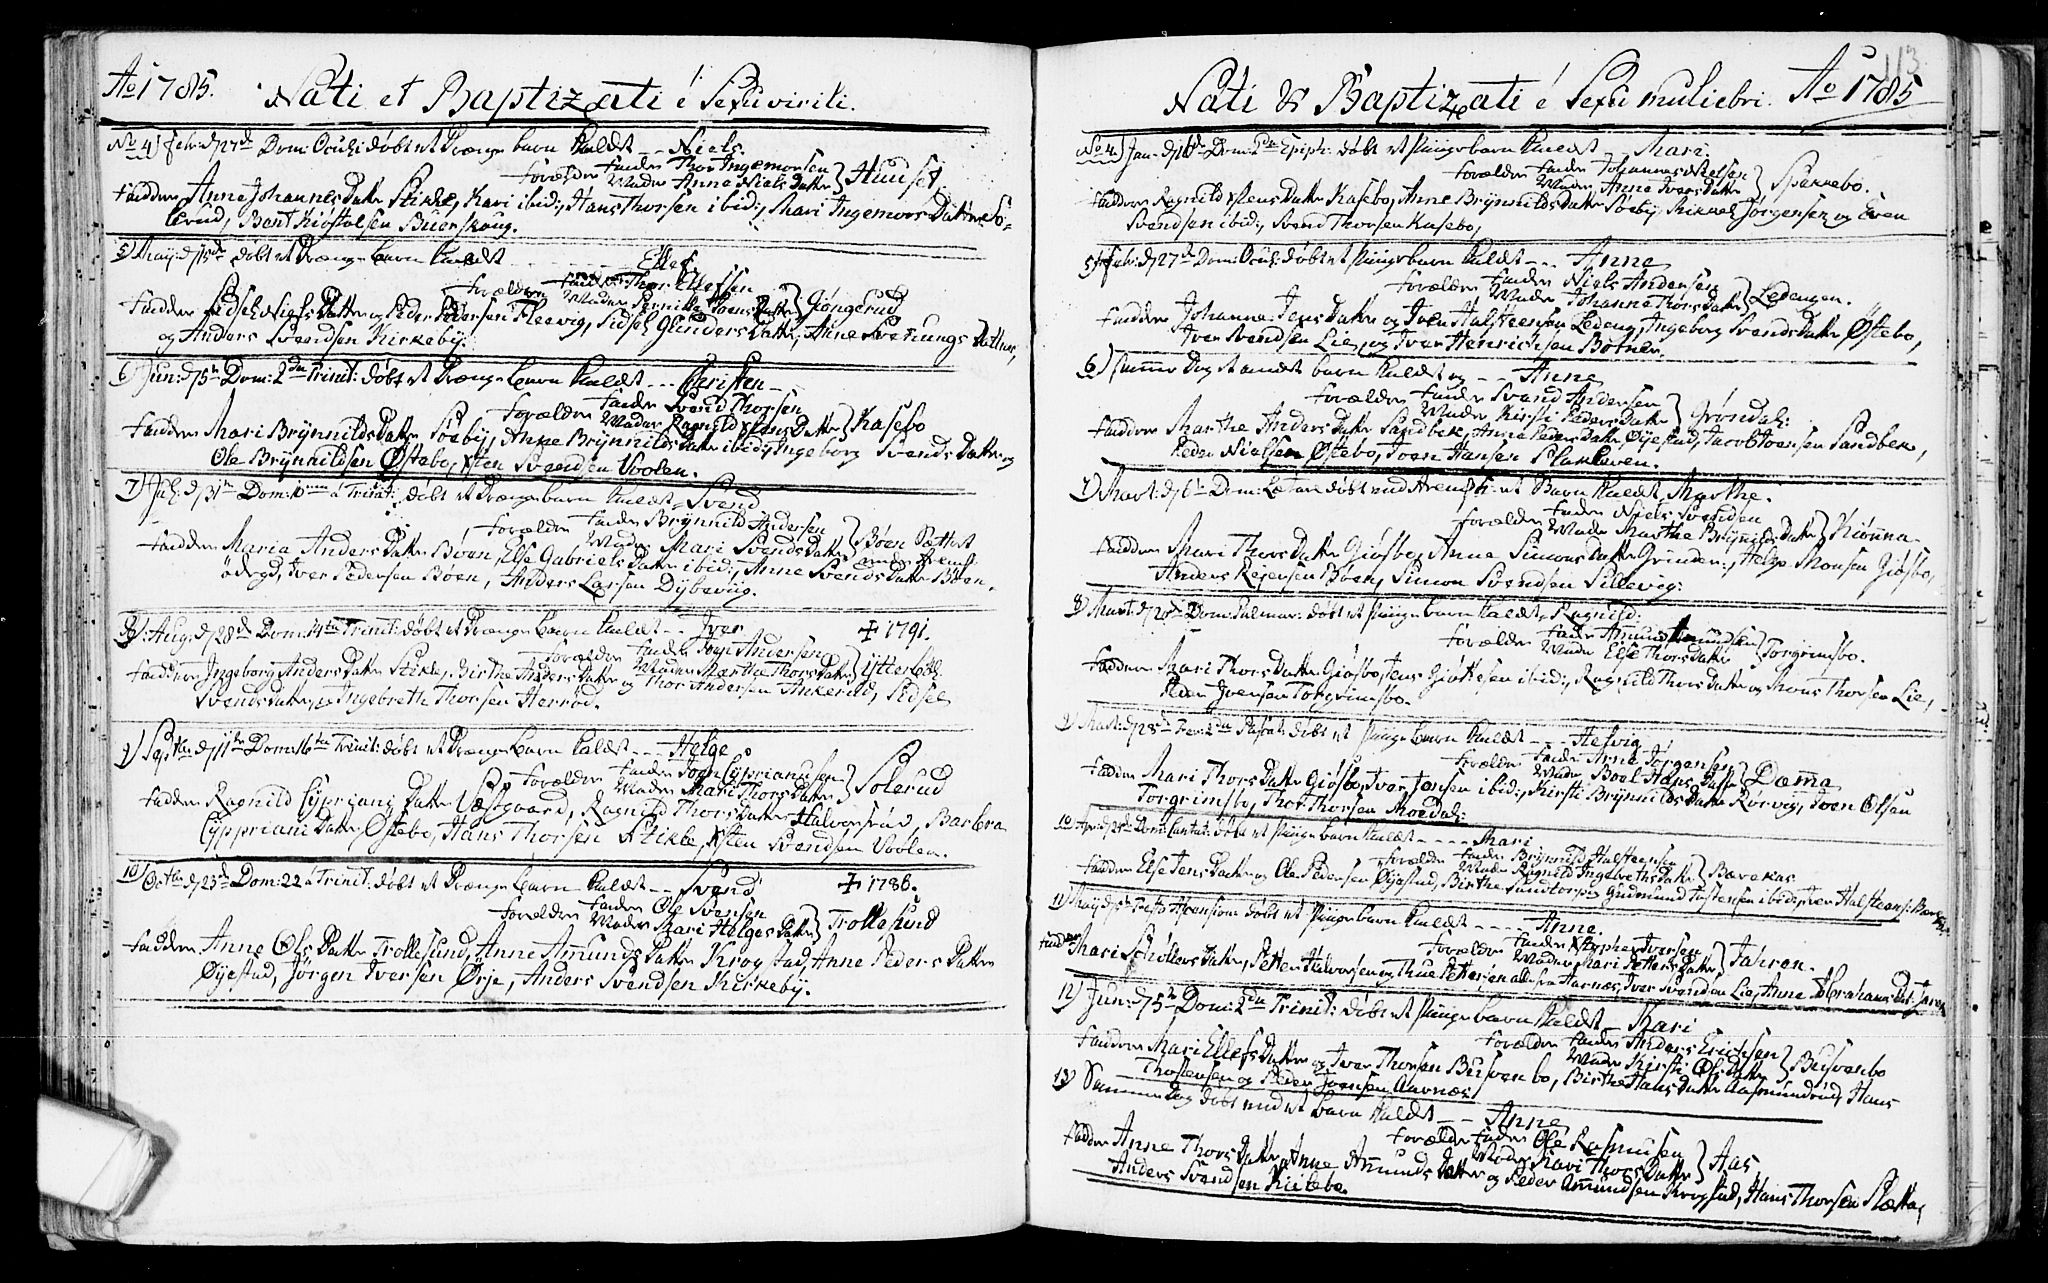 Ao 1785. Nati et Baptizati é Sexu virili.
No 4) Febr: d 27de Dom: Oculi døbt et Drænge barn kaldt -- Niels.
Forældre Fader Thor Ingemorsen
Moder Anne Niels Datter } Huuset
Faddere Anne Johannes Datter Stikle, Kari ibid:, Hans Thorsen ibid:, Mari Ingemors Datter
Bent Kiøstolsen Buerskoug.
5) May: d 15de døbt et Drænge barn kaldt - - - Ellef
Forældre Fader Thor Ellefsen
Moder Pernille Joens Datter } Giøngerud
Faddere Sidsel Niels Datter og Peder Pedersen Flesvig, Sidsel Gunders Datter, Anne Svenungs Datter,
og Anders Svendsen Kirkeby.
6) Jun: d 5te Dom: 2da Trinit: døbt et Drænge barn kaldt --- Christen --
Forældre Fader Svend Thorsen
Moder Ragnild Xstens Datter } Kasebo
Faddere Mari Brÿnnilds Datter Søebÿ, Anne Brÿnnilds Datter ibid:, Ingeborg Svends Datter og
Ole Brÿnnildsen Østebo, Xsten Svendsen Voolen.
7) Jul: d 31te Dom: 10ma á Trinit: døbt et Drænge barn kaldt - Svend
Forældre Fader Brÿnnild Andersen
Moder Mari Svends Datter } Bøen
Faddere Maria Anders Datter Bøen, Else Gabriels Datter ibid:, Anne Svends Datter Bøen,
Iver Pedersen Bøen, Anders Larsen Dÿbevug.
8): Aug: d 28de Dom: 14ta Trinit: døbt et Drænge barn kaldt -- Iver ✝ 1791.
Forældre Fader Joen Andersen
Moder Marthe Thors Datter } Ÿtterbøl
Faddere Ingeborg Anders Datter Stikle, Birthe Anders Datter og Thor Andersen Ankerild, Sidsel
Svends Datter, og Ingebreth Thorsen Herrød.
9) Septbr d 11te Dom: 16ta Trinit: døbt et Drænge barn kaldt --- Helge
Forældre Fader Joen Cyprianusen
Moder Mari Thors Datter } Solerud
Faddere Ragnild Cypriani Datter Væstgaard, Ragnild Thors Datter Halvorsrud, Barbra
Cyppriani Datter Østebo, Hans Thorsen Stikle, Xsten Svendsen Voolen.
10) Octbr d 23de Dom: 22 á Trinit: døbt et Drænge barn kaldt -- Svend ✝ 1786.
Forældre Fader Ole Svensen
Moder Mari Helges Datter } Trollesund
Faddere Anne Ols Datter Trollesund, Anne Amunds Datter Krogstad, Anne Peders Datter
Øÿestad, Jørgen Iversen Ørje, Anders Svendsen Kirkebÿ.
113
Nati & Baptizati é Sexu muliebri. Ao 1785
No 4) Jan: d 16de Dom: 2da Epiph: døbt et Pigebarn kaldt - Mari.
Forældre Fader Johannes Nielsen
Moder Anne Ivers Datter } Spækkebo.
Faddere Ragnild Xstens Datter Kasebo, Anne Brÿnnilds Datter Søebÿ, Mikkel Jørgensen og Even
Svendsen ibid:, Svend Thorsen Kasebo,
5) Febr: d 27de Dom: Oculi: døbt et Pigebarn kaldt --- Anne
Forældre Fader Niels Andersen
Moder Johanna Thors Datter } Ledengen.
Faddere Johanna Jens Datter og Iven Halsteensen Ledeng, Ingeborg Svends Datter Østebo,
Iver Svendsen Lie, og Iver Henrichsen Botner.
6) Samme Dag et andet barn kaldt og -- Anne
Forældre Fader Svend Andersen
Moder Kirsti Peders Datter } Grøndal:
Faddere Marthe Anders Datter Sandbek, Anne Peders Datter Øÿestad, Jacob Joensen Sandbek,
Peder Nielsen Østebo, Joen Hansen
7) Mart: d 6te Dom: Lætare døbt ved Aremsk: et Barn kaldt Marthe.
Forældre Fader Niels Svendsen
Moder Marthe Brÿnilds Datter } Kiønna
Faddere Mari Thors Datter Giøsbo, Anne Simons Datter Grinder:, Helge Monsen Giøsbo,
Anders Rejersen Bøen, Simon Svendsen Sillevig:
8) Mart: d 20de Dom: Palmar: døbt et Pigebarn kaldt, Ragnild:
Forældre Fader Amund
Moder Else Thors Datter } Torgrimsbo.
Faddere Mari Thors Datter Giøsbo, Jens Giøkesen ibid:, Ragnild Thors Datter og Mons Thorsen Lie,
Peder Joensen Torgrimsbo.
9) Mart: d 28de Fer: 2da Paschat: døbt et Pigebarn kaldt --- Helvig
Forældre Fader Arne Torgensen
Moder Boel Hans Datter } Damma
Faddere Mari Thors Datter Giøsbo, Iver Jensen ibid:, Kirsti Brÿnnilds Datter Rørvig, Joen Olsen
Torgrimsbo, Thor Thorsen Moedal:
10) Apr: d 24de Dom: Cantat: døbt et Pigebarn kaldt ---- Mari
Forældre Fader Brÿnnild Halsteensen
Moder Ragnild Ingebreths Datter } Bærekas.
Faddere Else Jens Datter og Ole Pedersen Øÿestad, Birthe Sandtorp og Gudmund Tostensen ibid:, Iver Halsteens: Bærekas
11) Maÿ d 5te Festo Ascensions døbt et Pigebarn kaldt ---- Anne.
Forældre Fader Xstopher Iversen
Moder Mari Petters Datter } Jahren.
Faddere Mari Skøllers Datter, Petter Halvorsen og Thue Pettersen alle fra Aarnæs, Iver Svendsen Lie, Anne Abrahams Dat: Jaren
12) Jun: d 5te Dom: 2da Trinit: døbt et Pigebarn kaldt -- Kari
Forældre Fader Anders Erichsen
Moder Kirsti Ols Datter } Busvenbo
Faddere Mari Ellefs Datter og Iver Thorsen Busvenbo, Birthe Hans Datter Aasmundrud, Hans
Thostensen og Peder Joensen Aarnæs
13) Samme Dag døbt end et barn kaldt -- Anne
Forældre Fader Ole Rasmusen
Moder Kari Thors Datter } Aas,
Faddere Anne Thors Datter, Anne Amunds Datter og Peder Amundsen Krogstad, Hans Thorsen Slætta,
Anders Svendsen Kirkebo.